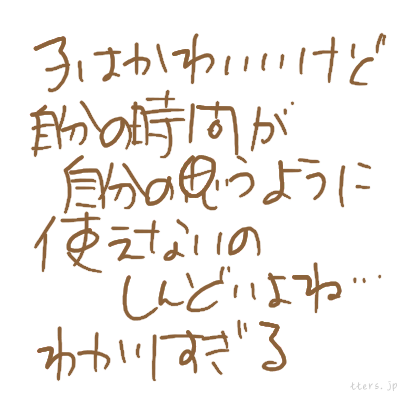 子はかわいいいけど
自分の時間が
自分の思うように
使えないの
しんどいよね…
わかりすぎる
tters.jp